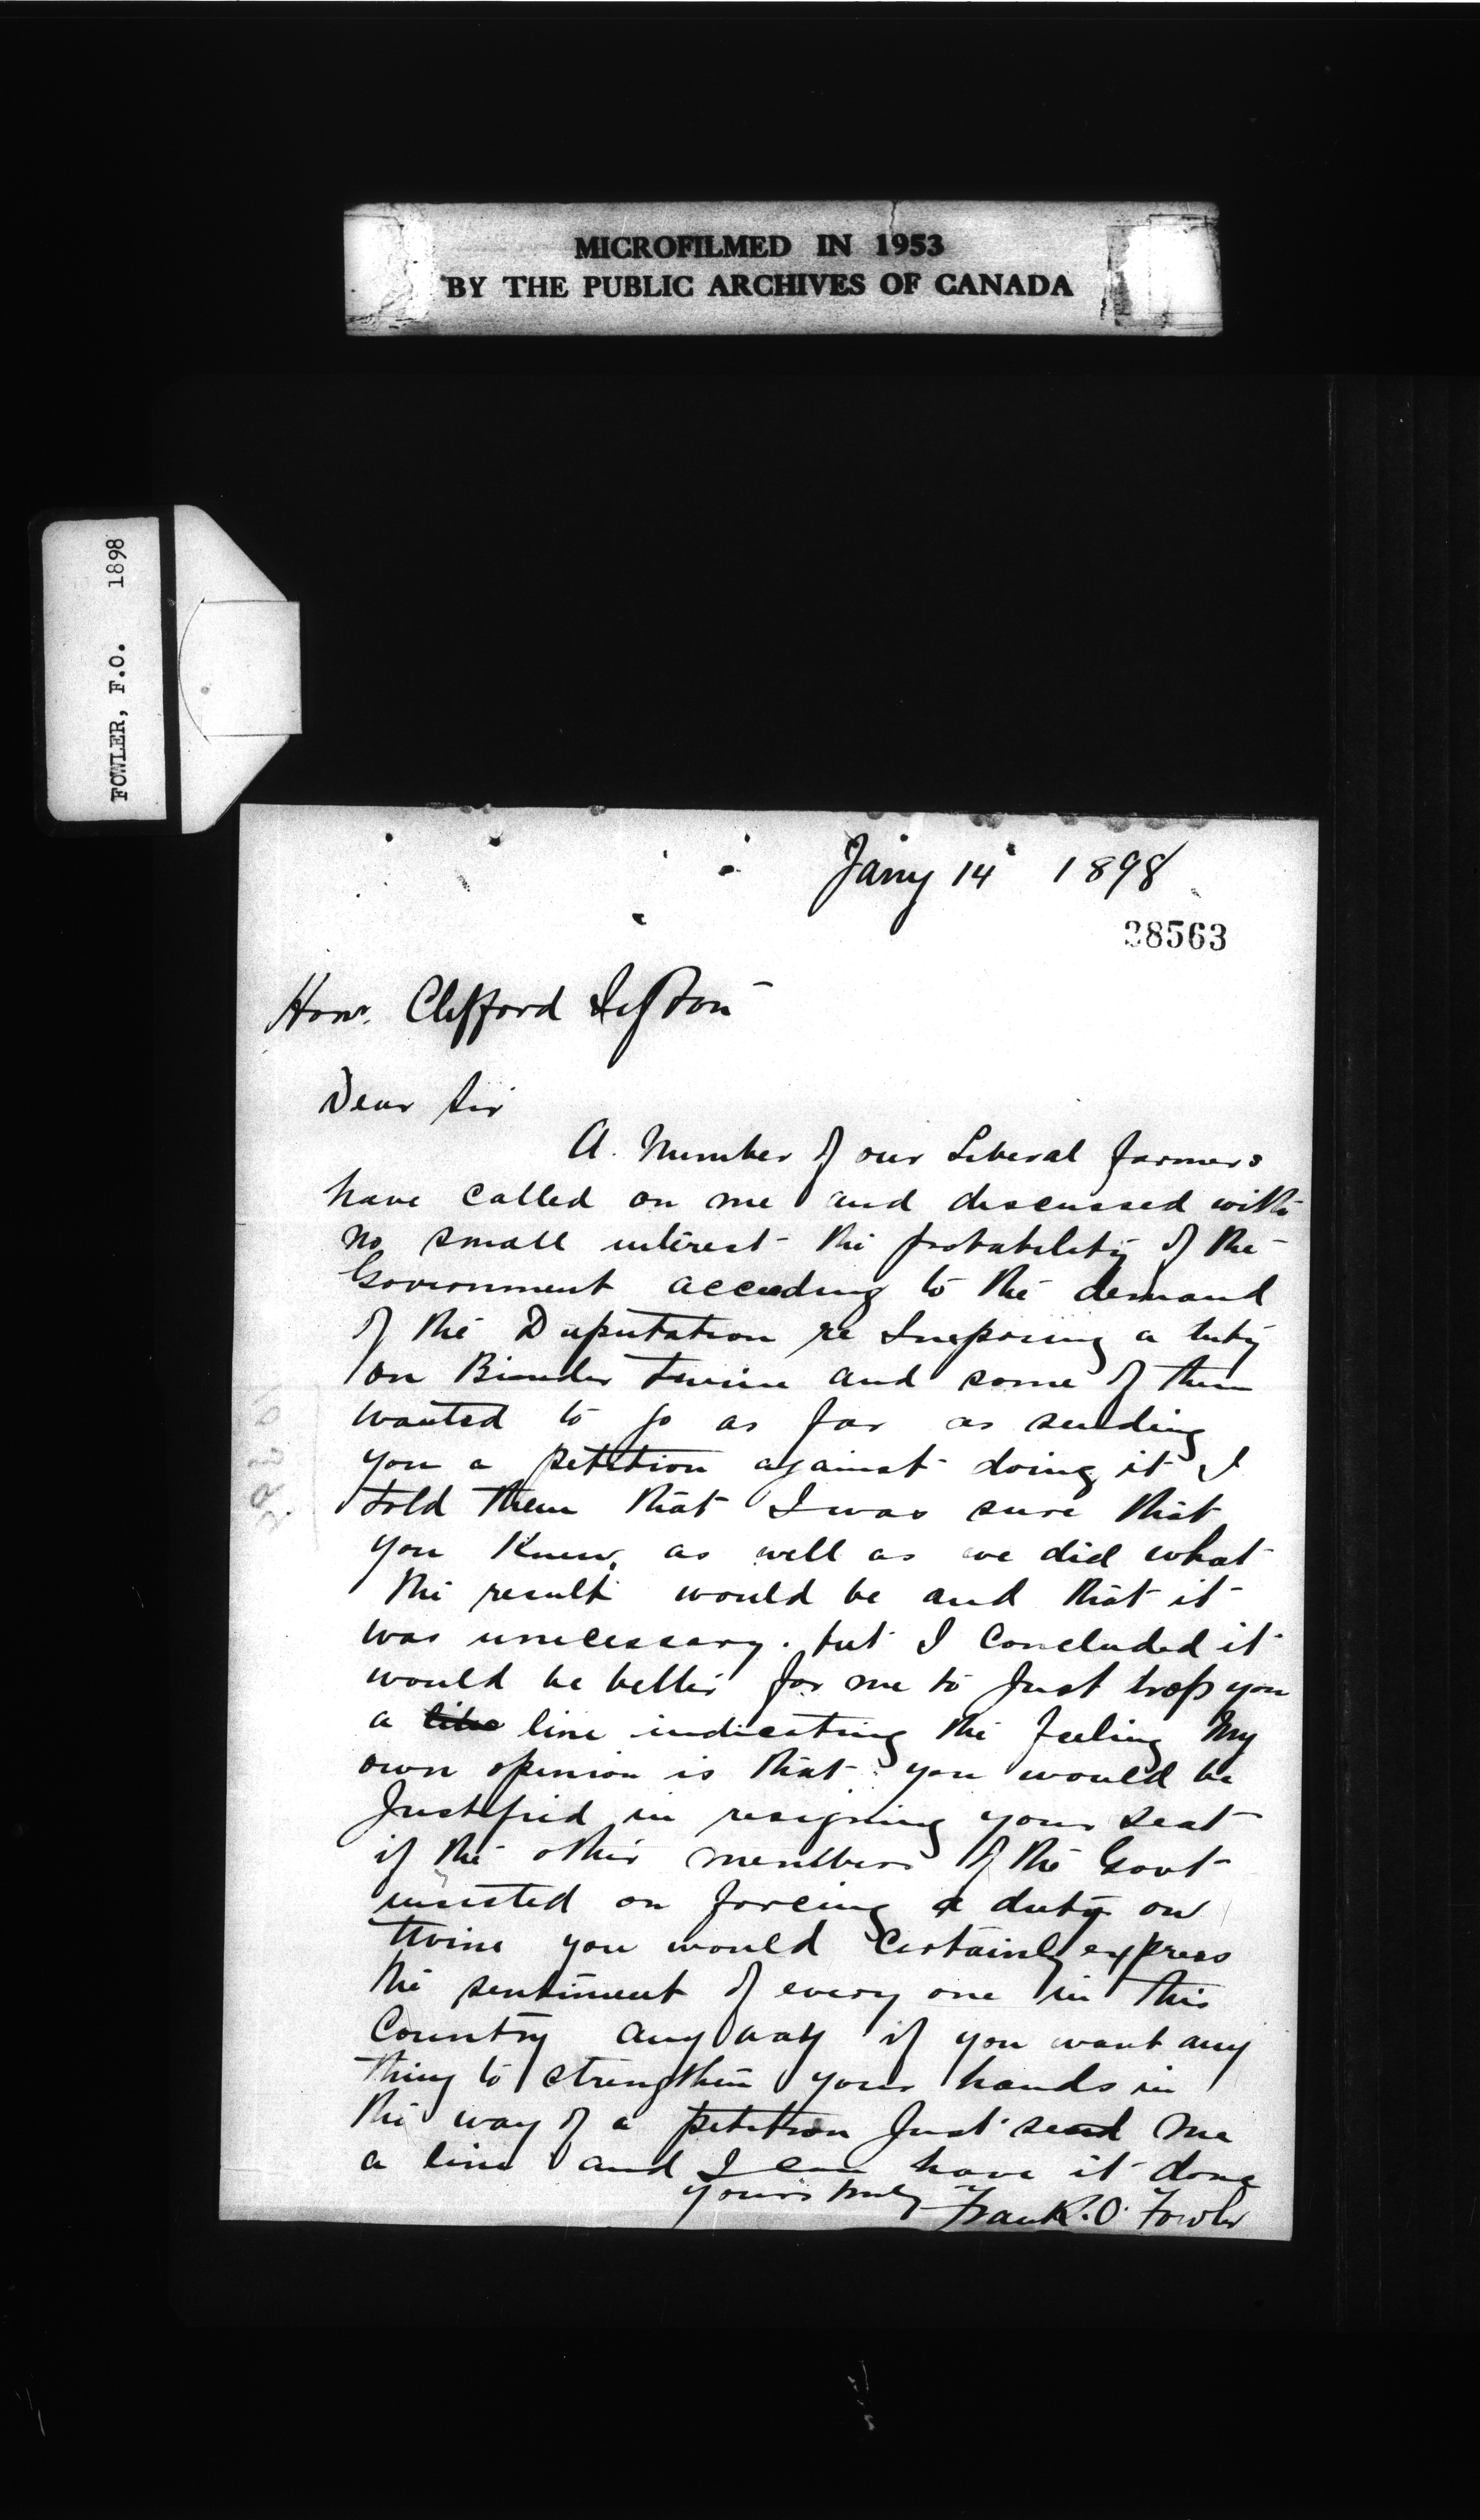 MICROFILMED IN 1953
BY THE PUBLIC ARCHIVES OF CANADA
FOWLER, F.O. 1898
Jany 14 1898
38563
Hon. Clifford Sifton
Dear Sir
A. Number of our Liberal farmers
have called on me and discussed with
no small interest the probability of the
Government acceeding to the demand
of the Deputation re Imposing a duty
on Binder twine and some of them
wanted to go as far as sending
you a petition against doing it I
told them that I was sure that
you Knew, as well as we did what
the result would be and that it
was unnecessary. but I concluded it
would be better for me to Just drop you
a line indicating the feeling My
own opinion is that you would be
Justified in resigning your seat
if the other members of the Govt
insisted on forcing a duty on
twine you would certainly express
the sentiment of every one in this
Country anyway if you want any
thing to strengthen your hands in
the way of a petition Just send me
a line and I can have it done
yours truly Frank. O. Fowler